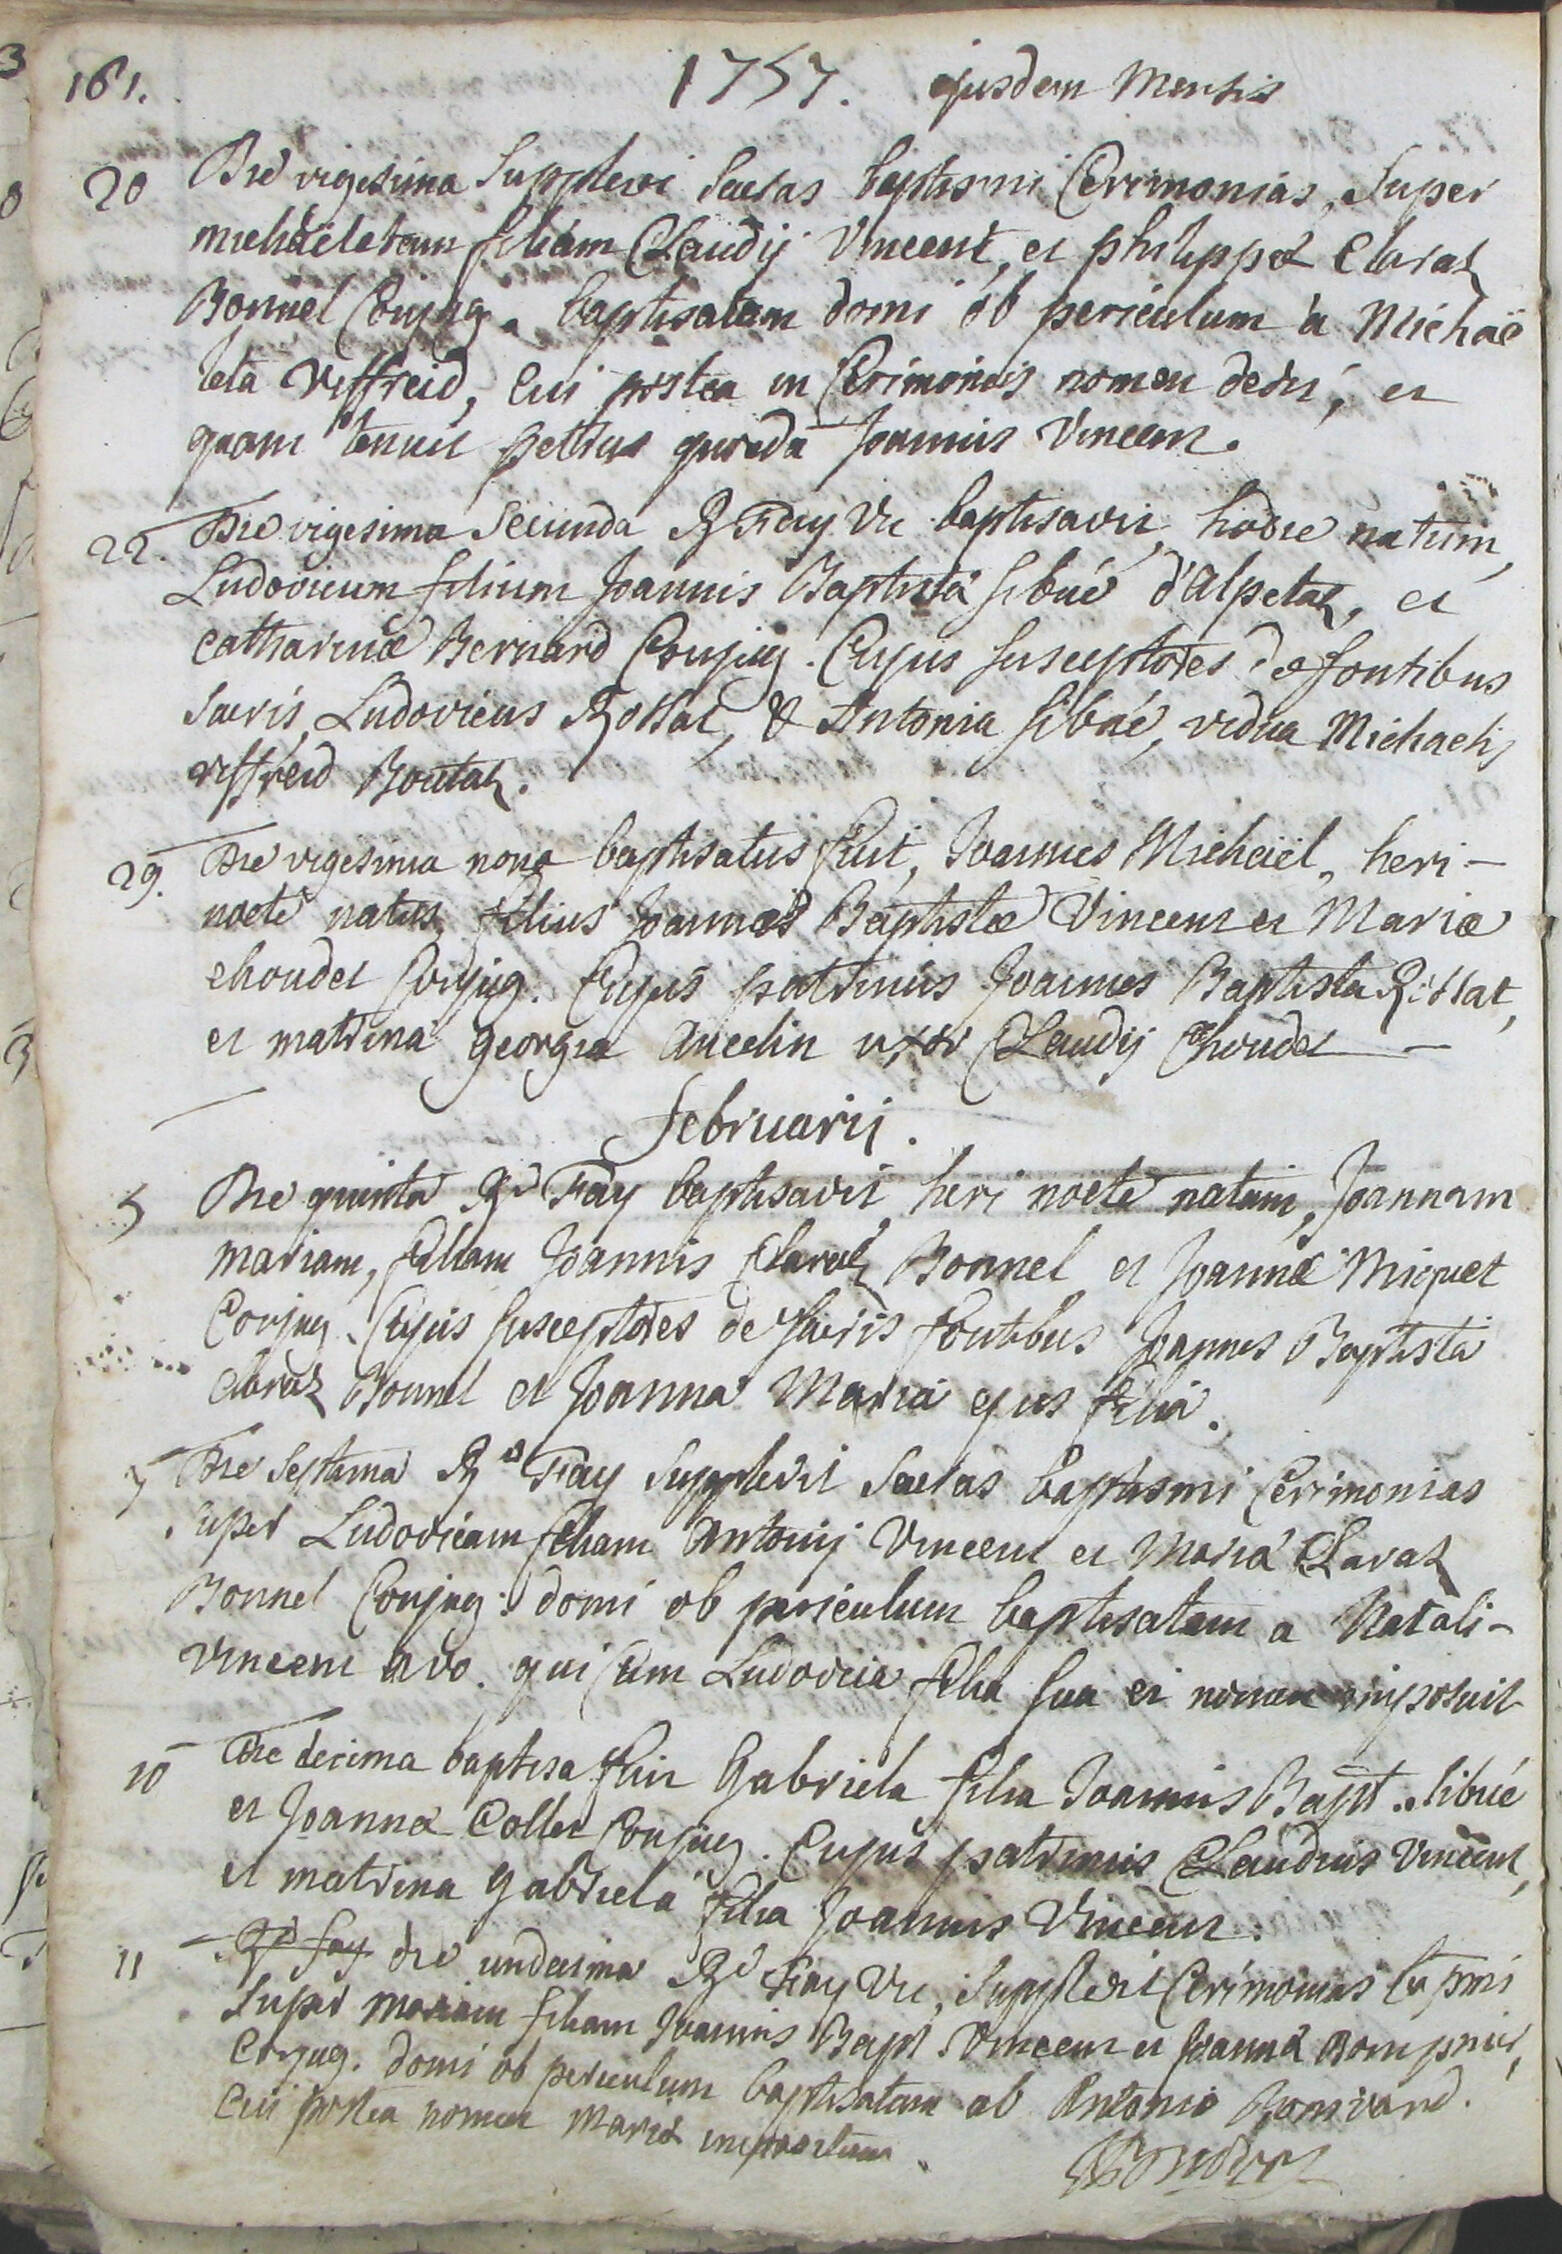 161. 1757. ejusdem Mensis
20 Die vigesima Supplevi Sacras baptismi Cerimonias, Super
michaeletam filiam Claudij Vincent, et philippæ Claraz
Bonnel Conjug. baptisatam domi ob periculum a Michaë
leta Viffreid, Cui postea in Cerimoniis nomen dedit, et
quam tenuit petrus quoda Joannis Vincent.
22. Die vigesima Secunda R Fay Vic baptisavit, hodie natum,
Ludovicum filium Joannis Baptista sibué d'alpetaz, et
Catharinæ Bernard Conjug. Cujus susceptores de fontibus
Sacris, Ludovicus Rossat, & Antonia sibué, vidua Michaelis
viffreid Boutaz.
29. Die vigesima nona baptisatus fuit, Joannes Michaël, heri –
nocte natus, filius Joannis Baptistæ Vincent et Mariæ
choudet Conjug. Cujus patrinus Joannes Baptista Rossat,
et matrina georgia ancelin uxor Claudij Choudet —
februarij.
5 Die quinta Rd Fay baptisavit, heri nocte natam, Joannam
mariam, filiam Joannis Claraz Bonnel et Joannæ Miquet
Conjug. Cujus susceptores de sacris fontibus Joannes Baptista
claraz Bonnel et Joanna Maria ejus filia.
7 Die Septima Rd Fay Supplevit Sacras baptismi Cerimonias
super Ludovicam filiam Antonij Vincent et Maria Claraz
Bonnel Conjug: domi ob periculum baptisatam a Natali –
Vincent avo. qui cum Ludovica filia sua ei nomen imposuit
10 Die decima baptisa fuit Gabriela filia Joannis Bapt.. sibué
et Joanna Collet Conjug. Cujus patrinus Claudius Vincent,
et matrina gabriela filia Joannis Vincent.
11 Rd fay die undecima Rd Fay Vic, Supplevit Cerimonias bapmi
Super mariam filiam Joannis Bapt. Vincent et Joanna Rompnid,
Conjug. domi ob periculum baptisatam ab Antonio Bonivard.
Cui postea nomen Mariæ impositum.